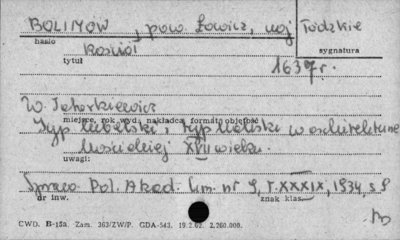 BOLIMÓW, pow. Łowicz, woj Łódzkie
hasło
sygnatura
Kościół
tytuł
1637 r.
W. Tatarkiewicz
miejsce, rok wyd., nakładca, format, objętość
Typ lubelski, typ kaliski w architekturze
kościelnej XVII wieku.
uwagi:
Prace Pol. Akad. Um. nr 9, r. XXXIX, 1934, s 8
nr inw.
znak klas.
CWD. B-15a. Zam. 363/ZW/P. GDA-543. 19.2.62. 2.260.000.